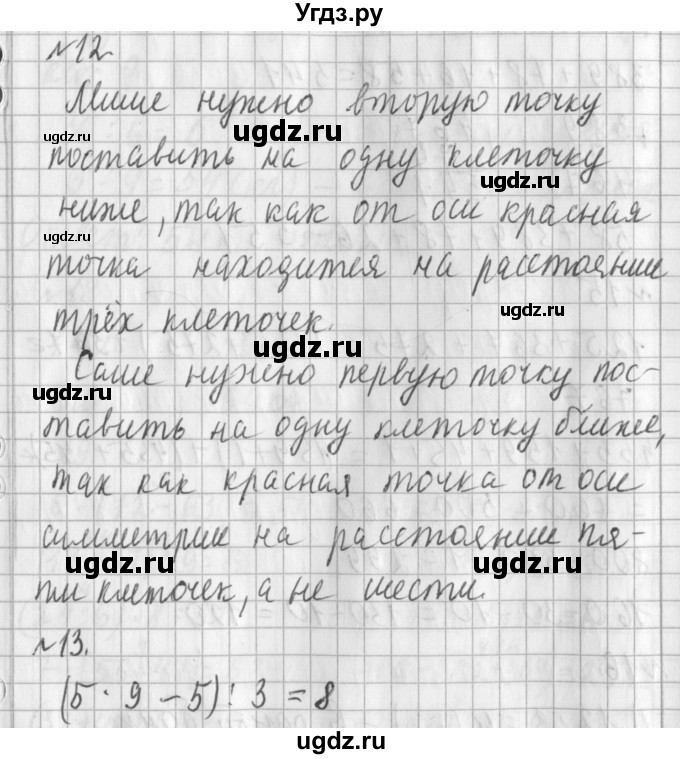 Угдз.ру
№12.
Мише нужно вторую точку
ugdz.ru ugdz.ru
поставить на одну клеточку
ugdz.ru
ниже, так как от оси красная
ugdz.ru
точка находится на расстоянии
ugdz.ru
трёх клеточек.
ugdz.ru
Саше нужно первую точку пос-
ugdz.ru ugdz.ru
тавить на одну клеточку ближе,
так как красная точка от оси
симметрии на расстоянии пя-
ugdz.ru ugdz.ru
ти клеточек, а не шести.
№13.
(5 · 9 - 5) : 3 = 8
ugdz.ru